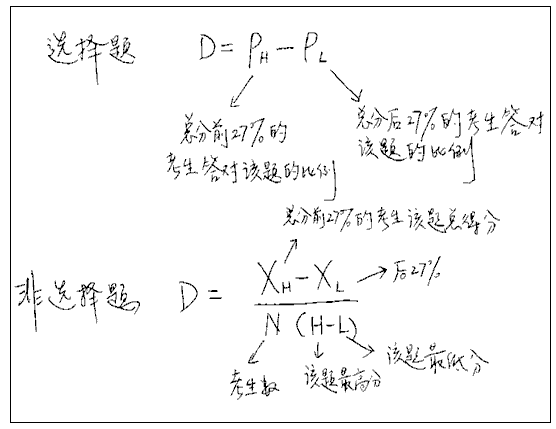 选择题 D = PH - PL
总分前27%的
考生答对该题的比例
总分后27%的考生答对
该题的比例
总分前27%的考生该题总得分
非选择题 D = XH - XL / N (H-L)
后27%
考生数
该题最高分
该题最低分